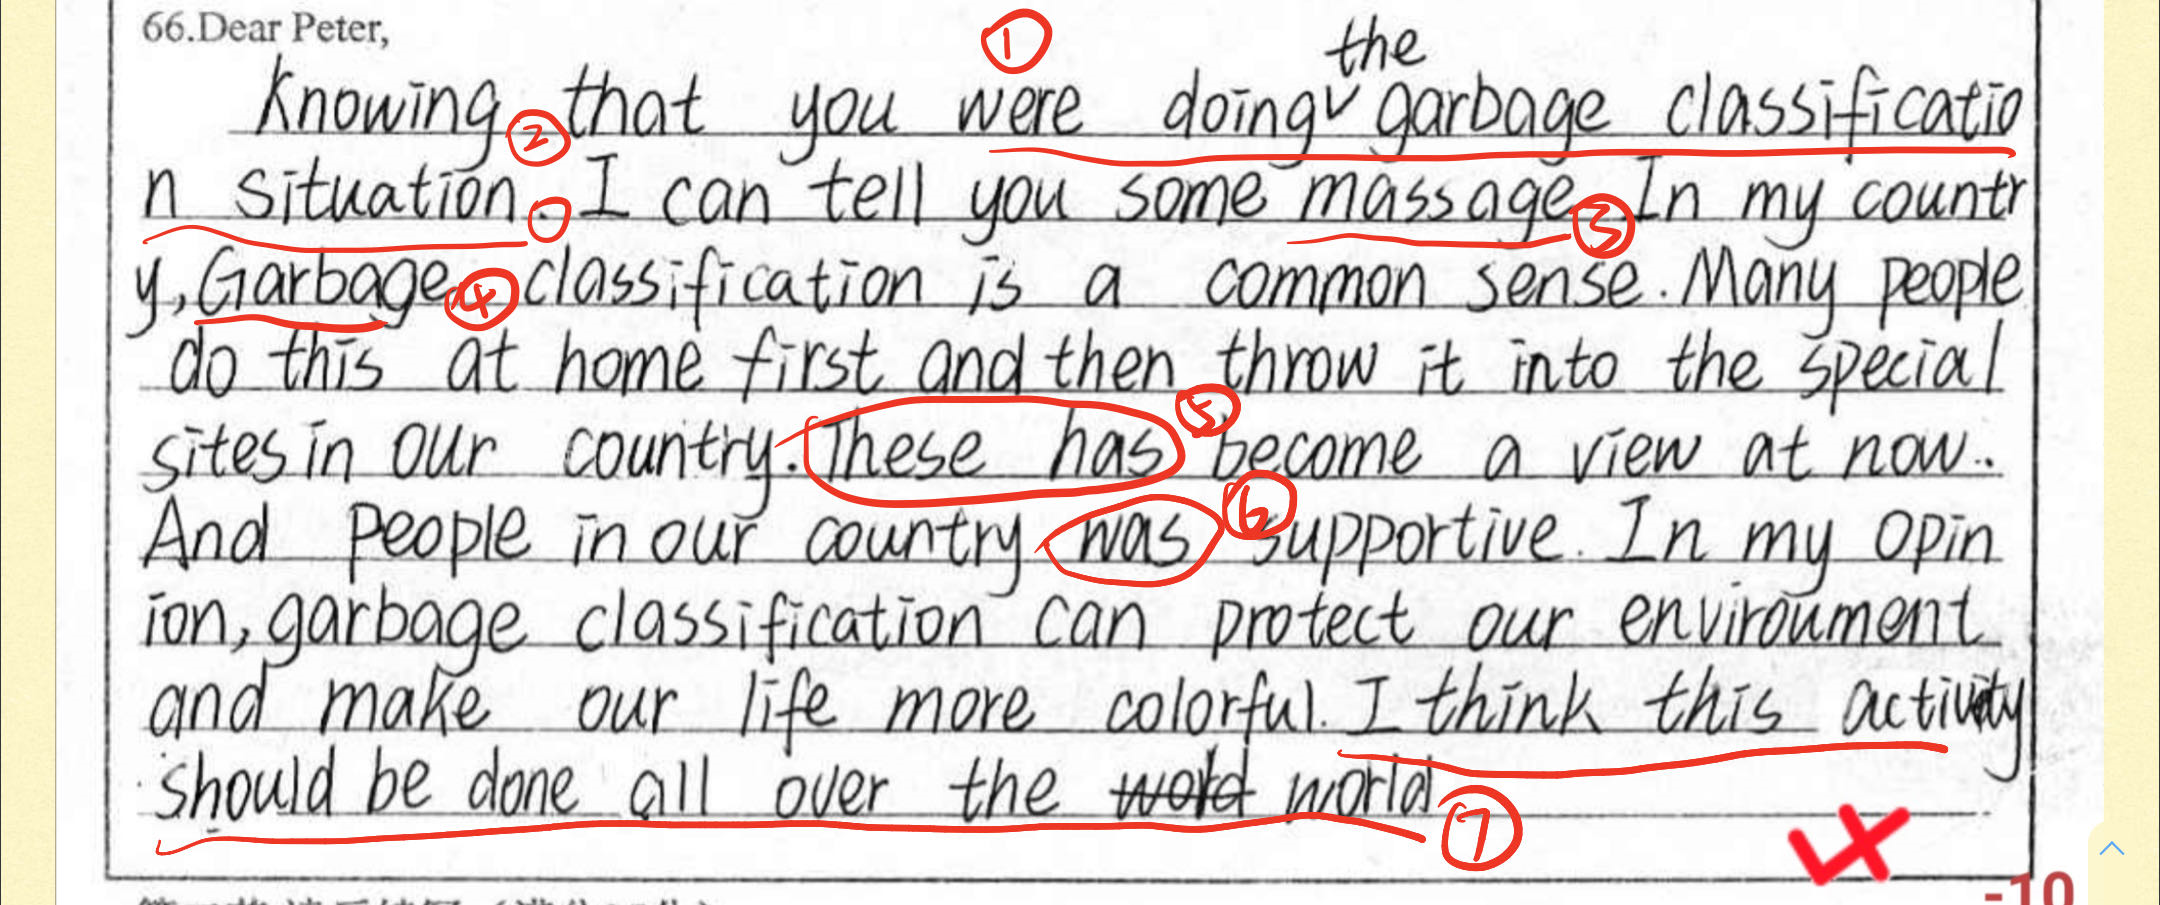 66.Dear Peter,
①
the
Knowing that you were doing garbage classificatio
②
n situation. I can tell you some massage. In my countr
③
y, Garbage classification is a common sense. Many people
④
do this at home first and then throw it into the special
⑤
sites in our country. These has become a view at now..
⑥
And people in our country was supportive. In my opin
ion, garbage classification can protect our enviroument
and make our life more colorful. I think this activity
should be done all over the word world
⑦
-10